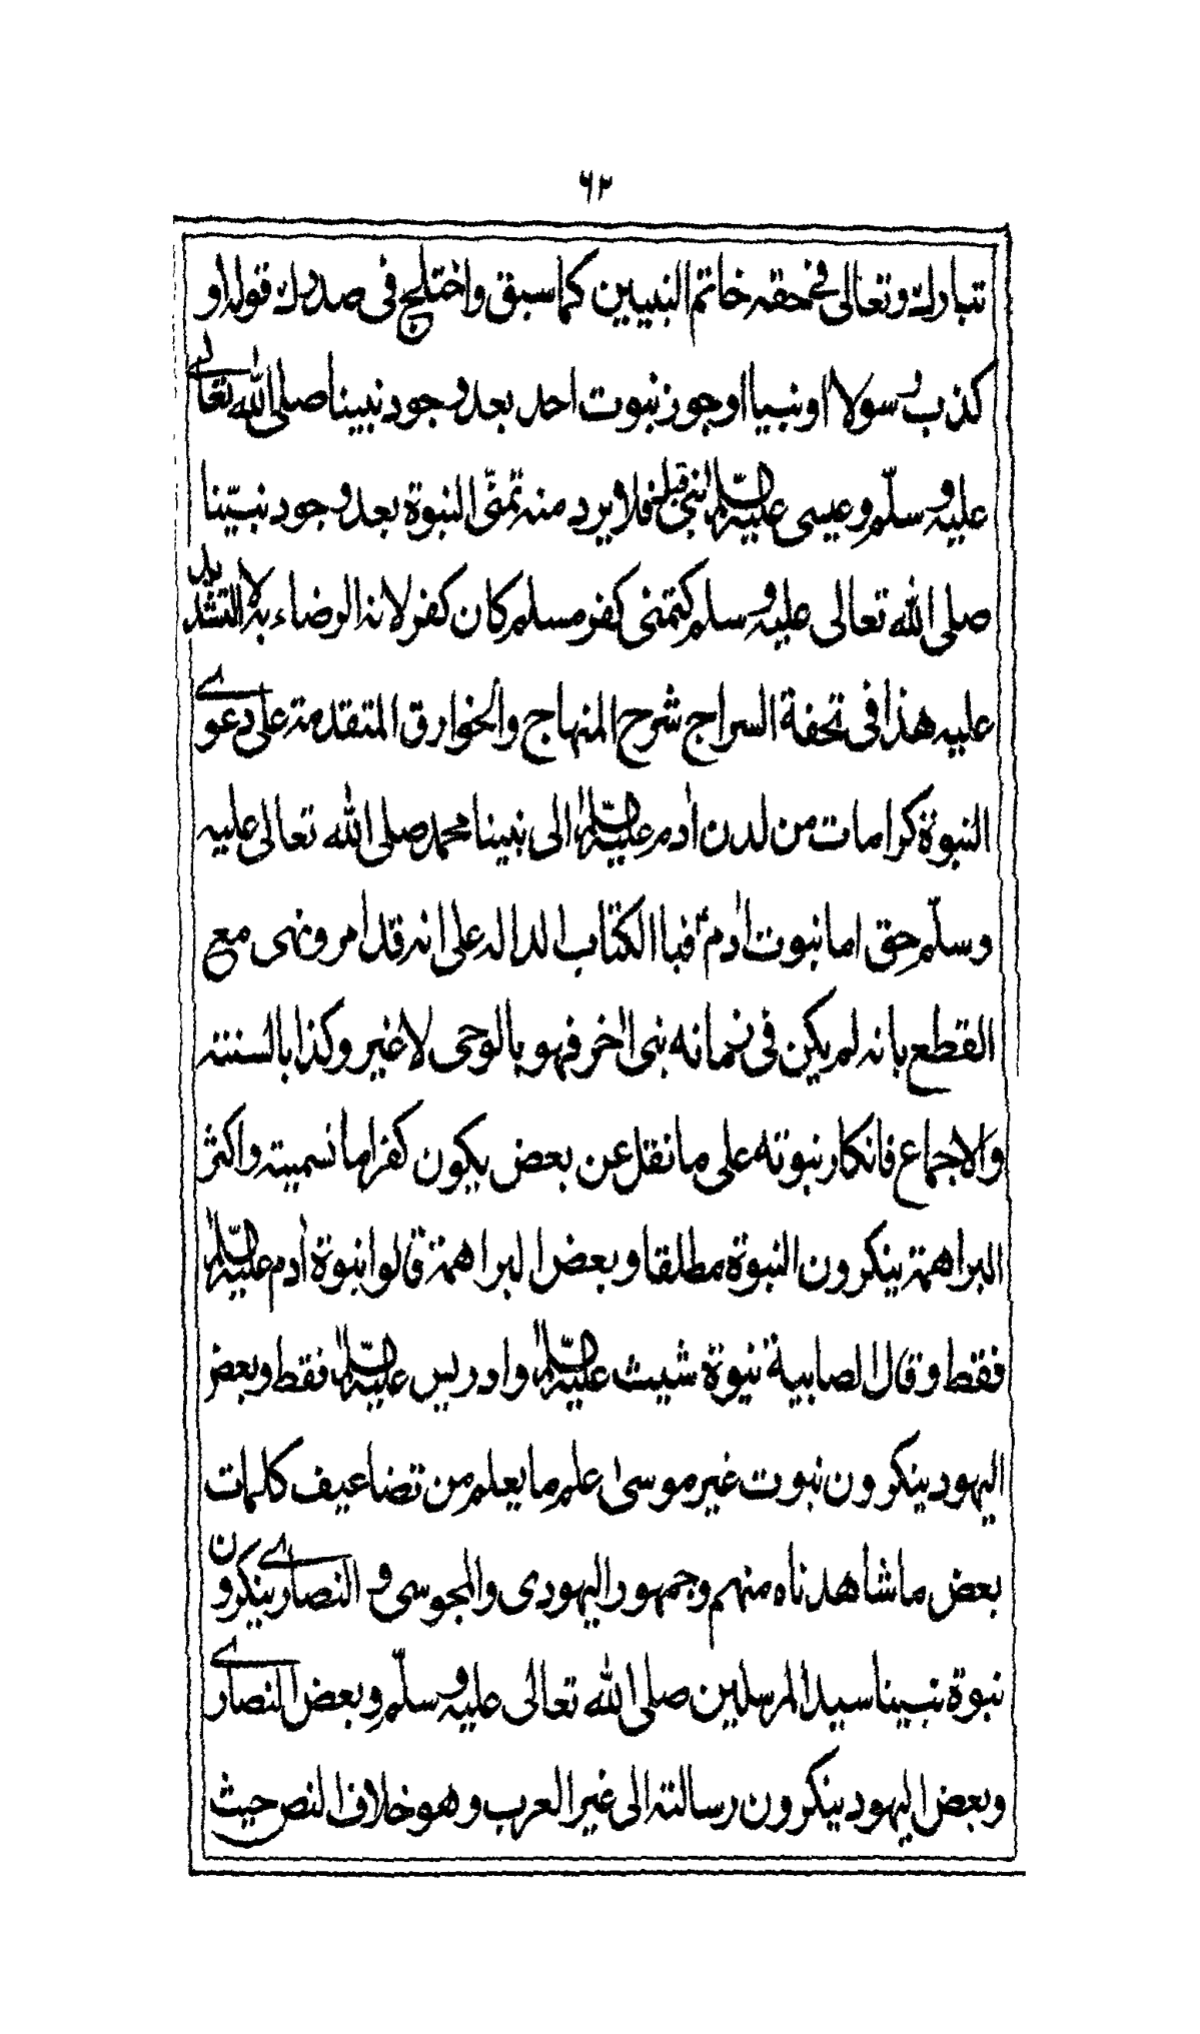 ٦٢
تبارك وتعالى في حقه خاتم النبيين كما سبق واختلج في صدرك قوله او
كذب رسولا او نبيا او جوز نبوت احد بعد وجود نبينا صلى الله تعالى
عليه وسلم وعيسى عليه السلام نبي قبل فلا يرد منه تمنّى النبوة بعد وجود نبيّنا
صلى الله تعالى عليه وسلم كتمنى كفر مسلم كان كفر لانه الرضاء به لا التشديد
عليه هذا في تحفة السراج شرح المنهاج والخوارق المتقدمة على دعوى
النبوة كرامات من لدن اٰدم عليه السلام الى نبينا محمد صلى الله تعالى عليه
وسلّم حق اما نبوت اٰدمؑ فبا الكتاب الداله على انه قد امر ونهى مع
القطع بانه لم يكن في زمانه نبى اٰخر فهو بالوحى لا غير وكذا بالسنته
والاجماع فانكار نبوته على ما نقل عن بعض يكون كفرا ما نسميته واكثر
البراهمة ينكرون النبوة مطلقا وبعض البراهمة قالوا بنبوة اٰدم عليه السلام
فقط وقال الصابية نبوة شيث عليه السلام وادريس عليه السلام فقط وبعض
اليهود ينكرون نبوت غير موسىٰ علم ما يعلم من تضاعيف كلمات
بعض ما شاهدناه منهم وجمهور اليهودى والمجوسى و النصارى ينكرون
نبوة نبينا سيد المرسلين صلى الله تعالى عليه وسلّم وبعض النصارى
وبعض اليهود ينكرون رسالته الى غير العرب وهو خلاف النص حيث